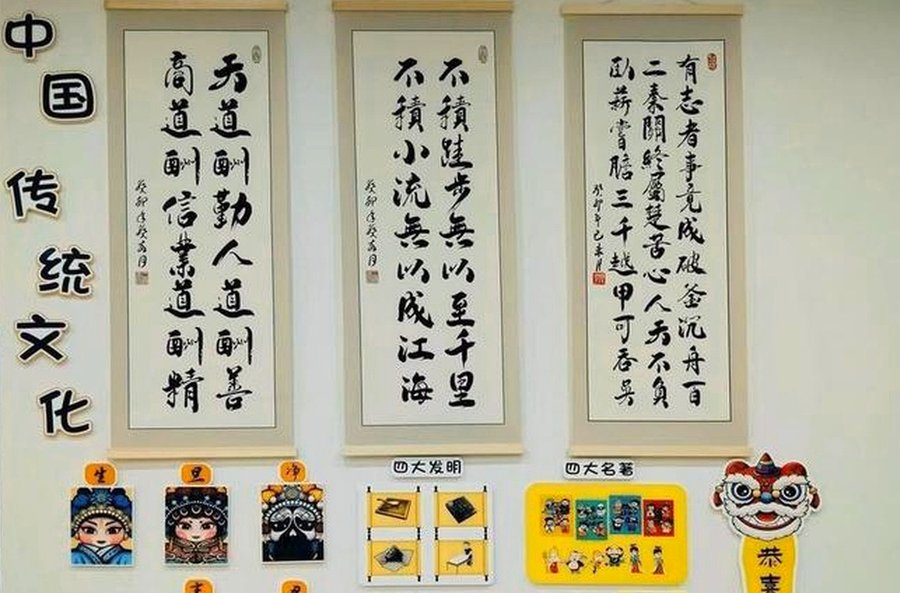 中国传统文化
天道酬勤人道酬善
商道酬信業道酬精
癸卯年癸亥月
不積跬步無以至千里
不積小流無以成江海
癸卯年癸亥月
有志者事竟成破釜沉舟百
二秦關終屬楚苦心人天不負
臥薪嘗膽三千越甲可吞吳
癸卯年己未月
生
旦
净
四大发明
四大名著
恭喜